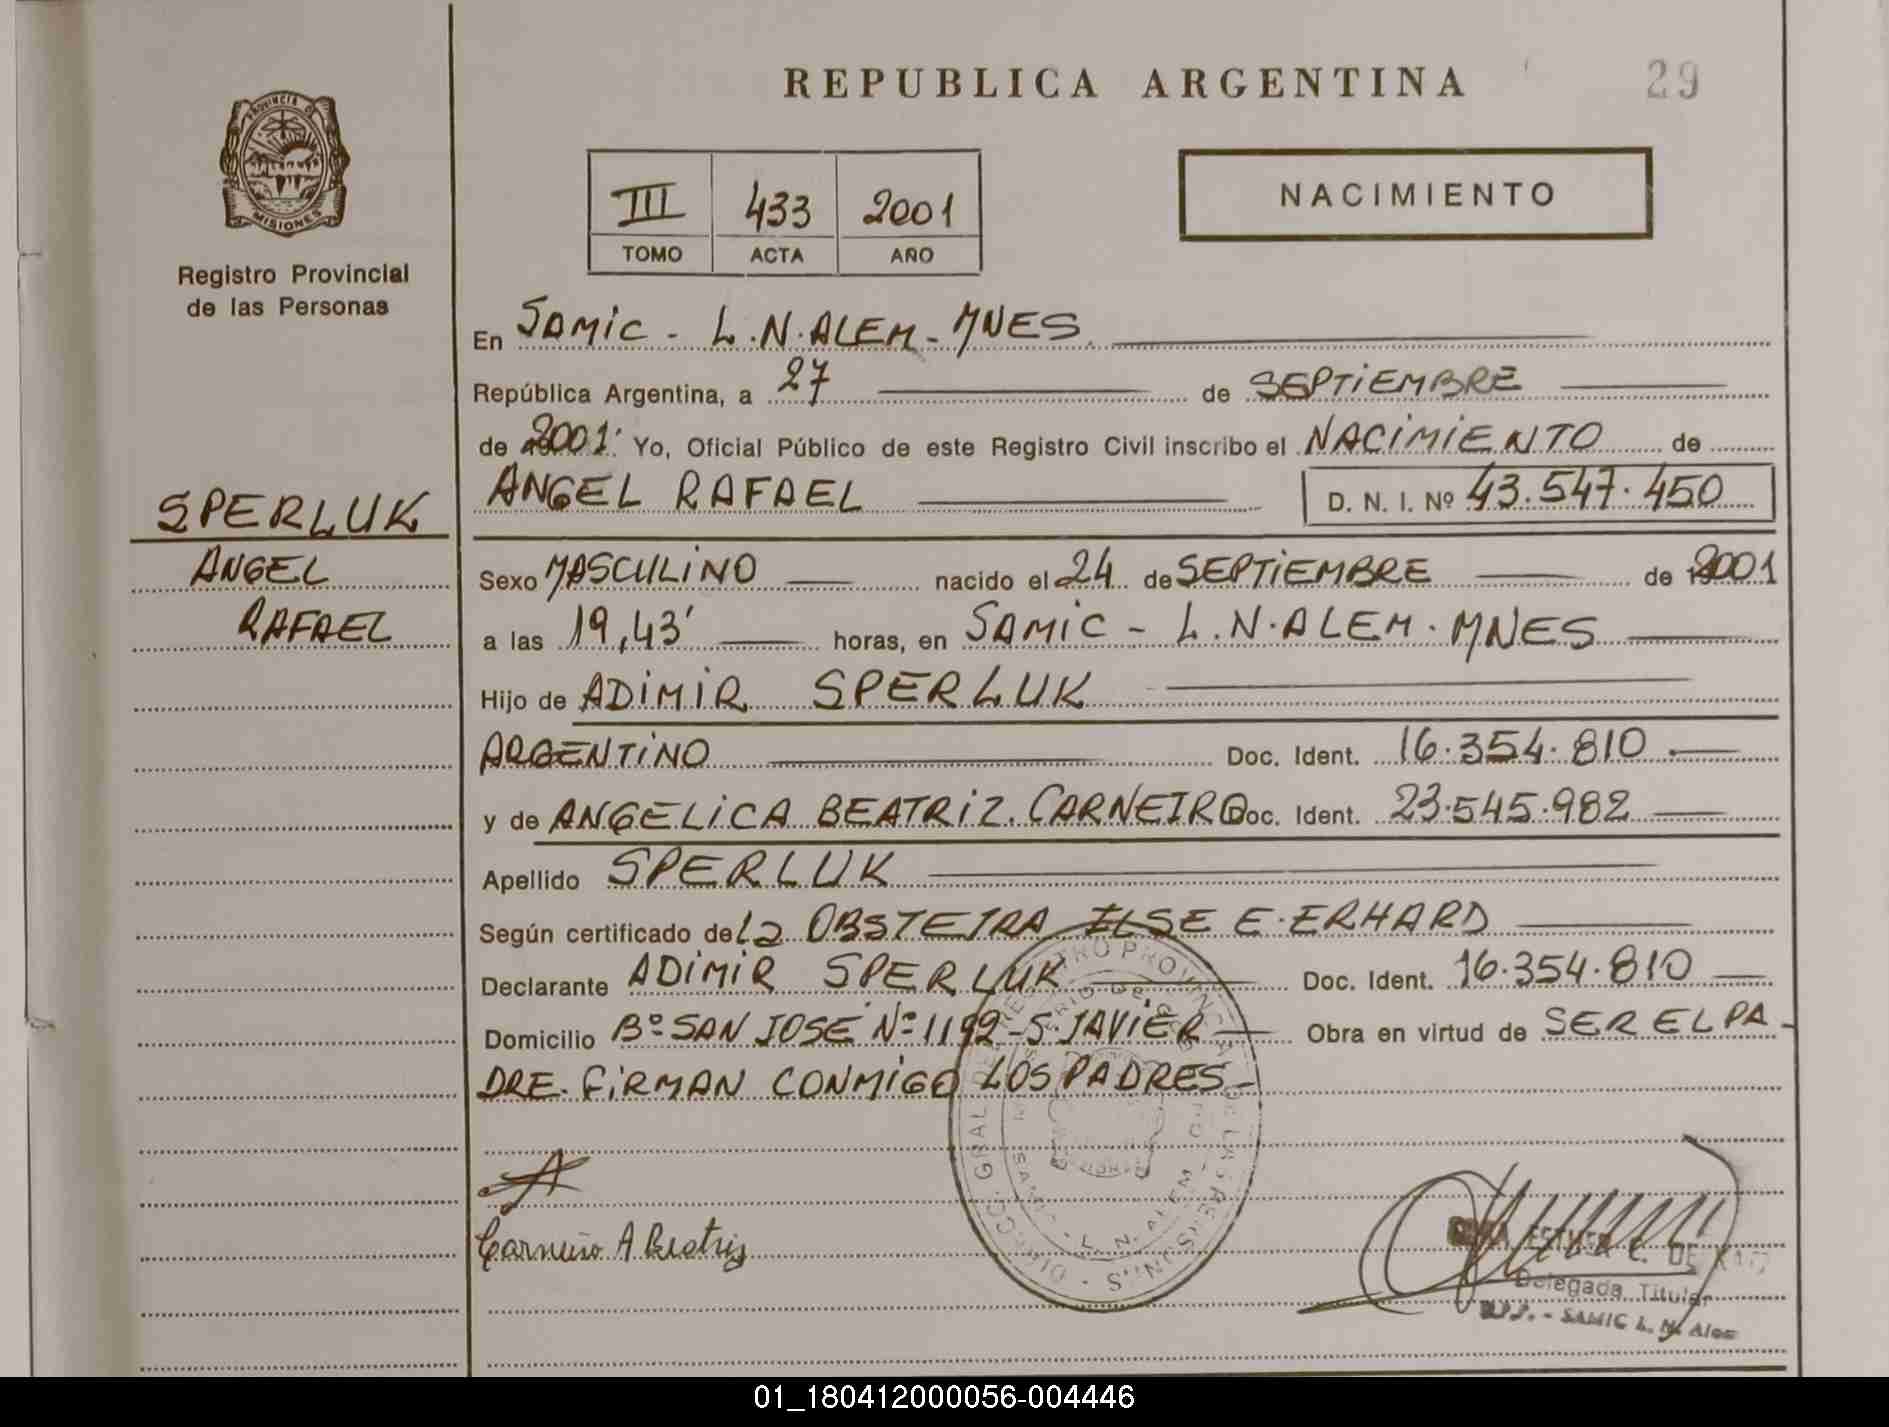 REPUBLICA ARGENTINA
29
PROVINCIA DE
MISIONES
Registro Provincial
de las Personas
III 433 2001
TOMO ACTA AÑO
NACIMIENTO
En SAMIC - L.N.ALEM - MNES
República Argentina, a 27 de SEPTIEMBRE
de 2001. Yo, Oficial Público de este Registro Civil inscribo el NACIMIENTO de
ANGEL RAFAEL D. N. I. Nº 43.547.450
SPERLUK
ANGEL
RAFAEL
Sexo MASCULINO nacido el 24 de SEPTIEMBRE de 2001
a las 19,43' horas, en SAMIC - L.N.ALEM. MNES
Hijo de ADIMIR SPERLUK
ARGENTINO Doc. Ident. 16.354.810
y de ANGELICA BEATRIZ. CARNEIRO Doc. Ident. 23.545.982
Apellido SPERLUK
Según certificado de la OBSTETRA ILSE E. ERHARD
Declarante ADIMIR SPERLUK Doc. Ident. 16.354.810
Domicilio Bº SAN JOSE Nº 1192 - S. JAVIER Obra en virtud de SER EL PA-
DRE. FIRMAN CONMIGO LOS PADRES-
Carneiro A Beatriz
Delegada Titular
SAMIC L. N. Alem
01_180412000056-004446